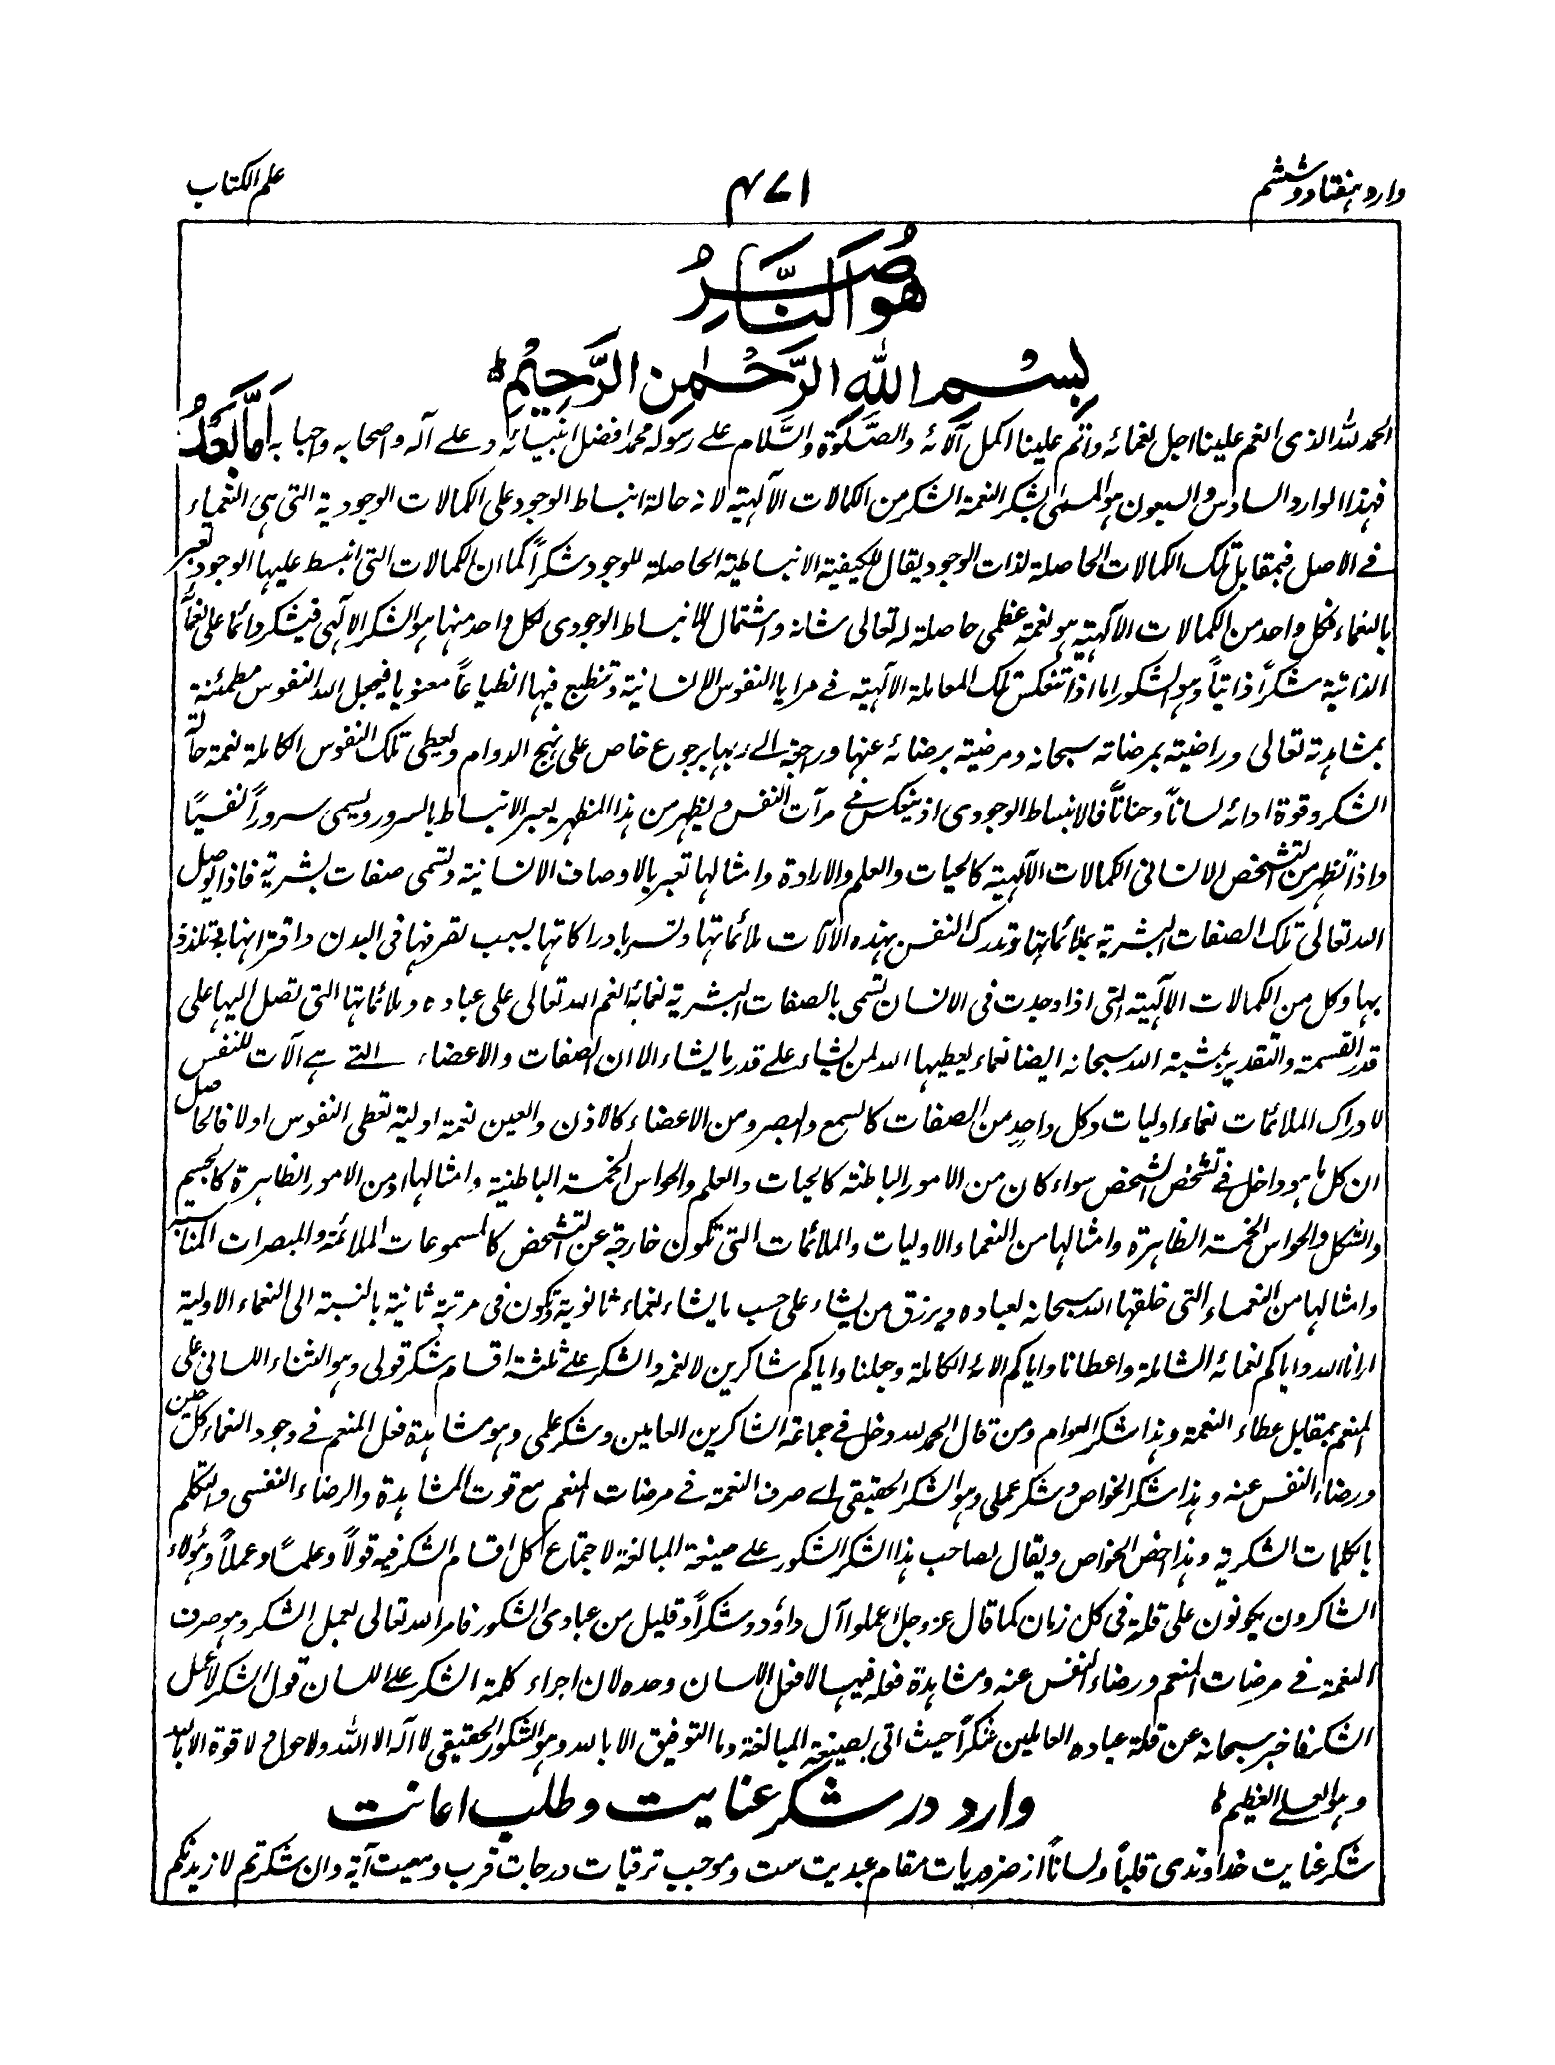 وارد ہفتاد و ششم
۴۷۱
علم الکتاب
هو الناصر
بسم الله الرحمن الرحيم
الحمد لله الذی انعم علینا اجل نعمائہ واتم علینا اکمل آلائہ والصلوٰة والسلام علے رسولہ محمد افضل انبیائہ و علے آلہ واصحابہ واحبابہ اما بعد
فہذا الوارد السادس والسبعون ہو المسمٰی بشکر النعمة الشکر من الکمالات الآلہیة لانہ حالة انبساط الوجود علی الکمالات الوجودیة التی ہی النعماء
فے الاصل فبمقابل تلک الکمالات الحاصلة لذات الوجود یقال للکیفیة الانبساطیة الحاصلة للوجود شکراً کما ان الکمالات التی انبسط علیہا الوجود تعبر
بالنعماء فکل واحد من الکمالات الآلہیة ہو نعمة عظمی حاصلة لہ تعالی شانہ واشتمال الانبساط الوجودی لکل واحد منہا ہو الشکر الآلہی فیشکر دائما علی نعمائہ
الذاتیة شکراً ذاتیاً وہو الشکور اما اذا تنعکس تلک المعاملة الآلہیة فے مرایا النفوس الانسانیة وتنطبع فیہا انطباعاً معنویا فیجعل اللہ النفوس مطمئنة
بمشاہدتہ تعالی وراضیة بمرضاتہ سبحانہ ومرضیة برضائہ عنہا وراجعة الے ربہا برجوع خاص علی نہج الدوام ویعطی تلک النفوس الکاملة نعمة حالة
الشکر وقوة ادائہ لساناً وجناناً فالانبساط الوجودی اذ ینعکس فے مرآت النفس ویظہر من ہذا المظہر یعبر الانبساط بالسرور ویسمی سروراً نفسیاً
واذا تظہر من التشخص الانسانی الکمالات الآلہیة کالحیات والعلم والارادة وامثالہا تعبر بالاوصاف الانسانیة وتسمی صفات بشریة فاذا یوصل
اللہ تعالی تلک الصفات البشریة بملائماتہا وتدرک النفس بہذہ الآلات ملائماتہا وتسر بادراکاتہا بسبب تصرفہا فی البدن واقترانہا بہ تلذذ
بہا وکل من الکمالات الآلہیة التی اذا وجدت فی الانسان تسمی بالصفات البشریة نعمائہ انعم اللہ تعالی علی عبادہ وملائماتہا التی تصل الیہا علی
قدر القسمة والتقدیر بمشیة اللہ سبحانہ ایضا نعماء یعطیہا اللہ لمن یشاء علے قدر ما یشاء الا ان الصفات والاعضاء التے ہے آلات للنفس
لادراک الملائمات نعماء اولیات وکل واحد من الصفات کالسمع والبصر ومن الاعضاء کالاذن والعین نعمة اولیة تعطی النفوس اولا فالحاصل
ان کل ما ہو داخل فے تشخص الشخص سواء کان من الامور الباطنة کالحیات والعلم والحواس الخمسة الباطنیة وامثالہا او من الامور الظاہرة کالجسم
والشکل والحواس الخمسة الظاہرة وامثالہا من النعماء الاولیات والملائمات التی تکون خارجة عن التشخص کالمسموعات الملائمة والمبصرات المناسبة
وامثالہا من النعماء التی خلقہا اللہ سبحانہ لعبادہ ویرزق من یشاء علی حسب ما یشاء نعماء ثانویة وتکون فی مرتبة ثانیة بالنسبة الی النعماء الاولیة
ارانا اللہ وایاکم نعمائہ الشاملة واعطانا وایاکم الائہ الکاملة وجعلنا وایاکم شاکرین لانعمہ والشکر علے ثلثة اقسام شکر قولی وہو الثناء اللسانی علی
المنعم بمقابل عطاء النعمة وہذا شکر العوام ومن قال الحمد للہ دخل فے جماعة الشاکرین العابین وشکر علمی وہو مشاہدة فعل المنعم فے وجود النعماء کل حین
ورضاء النفس عنہ وہذا شکر الخواص وشکر عملی وہو الشکر الحقیقی اے صرف النعمة فے مرضات المنعم مع قوت المشاہدة والرضاء النفسی والتکلم
بالکلمات الشکریة وہذا اخص الخواص ویقال لصاحب ہذا الشکر الشکور علے صیغة المبالغة لاجتماع کل اقسام الشکر فیہ قولاً وعلماً وعملاً وہؤلاء
الشاکرون یکونون علی قلة فی کل زمان کما قال عز وجل اعملوا آل داؤد شکراً وقلیل من عبادی الشکور فامر اللہ تعالی بعمل الشکر وہو صرف
النعمة فے مرضات المنعم ورضاء النفس عنہ ومشاہدة فعلہ فیہا لا فعل اللسان وحدہ لان اجراء کلمة الشکر علے اللسان قول الشکر لا عمل
الشکر فاخبر سبحانہ عن قلة عبادہ العاملین شکراً حیث اتی بصیغة المبالغة وما التوفیق الا باللہ وہو الشکور الحقیقی لا الہ الا اللہ ولا حول ولا قوة الا باللہ
وہو العلے العظیم
وارد در شکر عنایت و طلب اعانت
شکر عنایت خداوندی قلباً ولساناً از ضروریات مقام عبدیت ست وموجب ترقیات درجات قرب ومعیت آیة وان شکرتم لازیدنکم